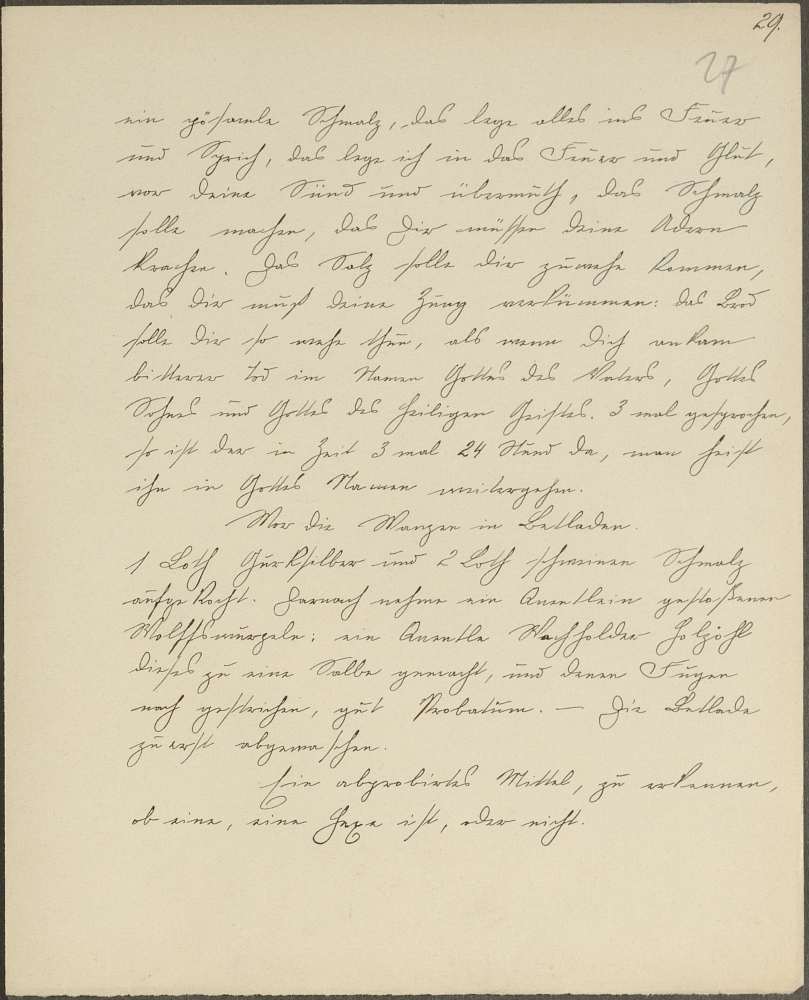 29.
27
ein gösamle Schmalz, das lege alles ins Feuer
und Sprich, das lege ich in das Feuer und Glut,
vor deine Sünd und übermuth, das Schmalz
solle machen, das Dir müssen deine Adern
krachen. Das Salz solle dir zuwehe kommen,
das dir muß deine Zung verkümmen: das Brod
solle dir so wehe thun, als wenn dich ankam
bitterer Tod im Namen Gottes des Vaters, Gottes
Sohnes und Gottes des heiligen Geistes. 3 mal gesprochen,
so ist der in Zeit 3 mal 24 Stund da, man heist
ihn in Gottes Namen weitergehen.
Vor die Wanzen in Betladen.
1 Loth Queksilber und 2 Loth schweinen Schmalz
aufgekocht. Darnach nehme ein Quentlein gestoßenen
Wolffswurzeln; ein Quentle Wachholder Holzöhl
dieses zu eine Salbe gemacht, und denen Fugen
nach gestrichen, gut Probatum. — Die Betlade
zu erst abgewaschen.
Ein abprobirtes Mittel, zu erkennen,
ob eine, eine Hexe ist, oder nicht.